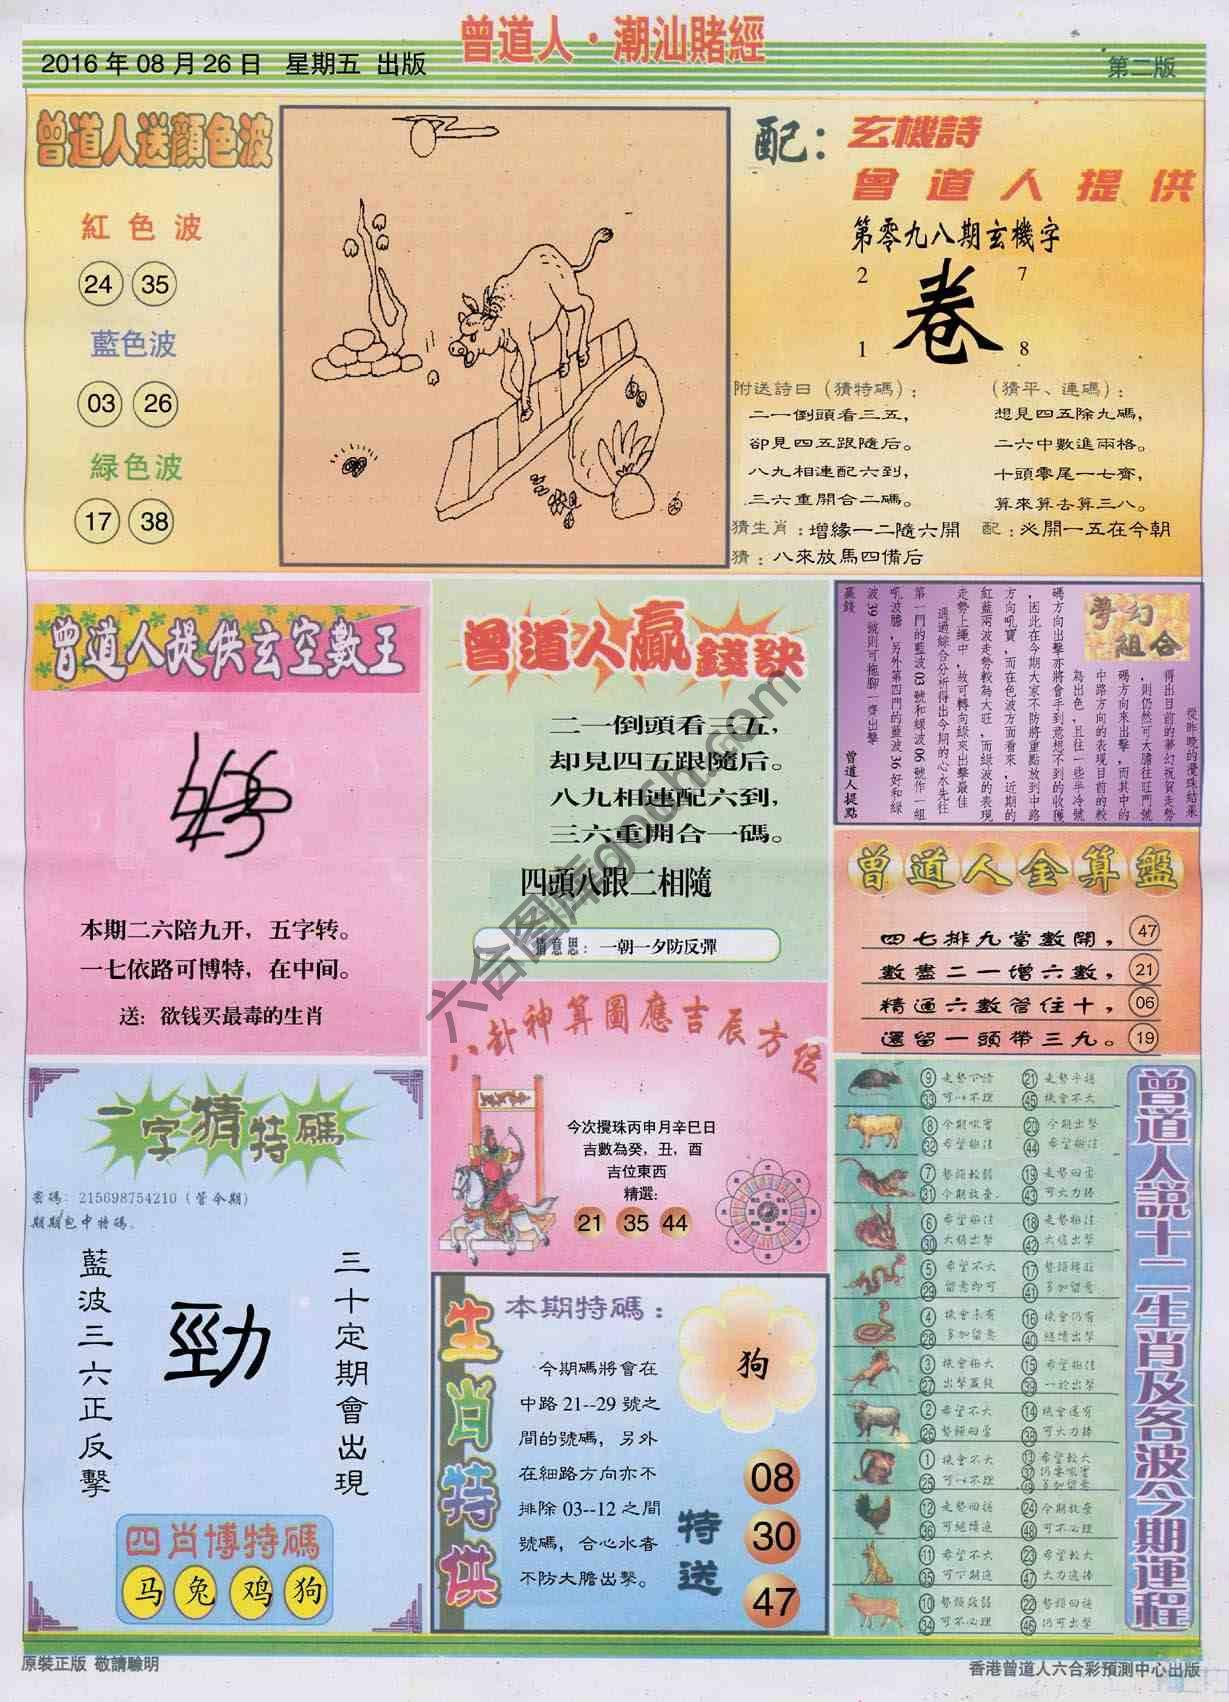 2016年08月26日 星期五 出版
曾道人·潮汕賭經
第二版
曾道人送顏色波
紅色波
24 35
藍色波
03 26
緑色波
17 38
配：玄機詩
曾道人提供
第零九八期玄機字
2 7
卷
1 8
附送詩曰（猜特碼）：
二一倒頭看三五，
卻見四五跟隨后。
八九相連配六到，
三六重開合二碼。
（猜平、連碼）：
想見四五除九碼，
二六中數進兩格。
十頭零尾一七齊，
算來算去算三八。
猜生肖：增緣一二隨六開
配：必開一五在今朝
猜：八來放馬四備后
曾道人提供玄空數王
本期二六陪九开，五字转。
一七依路可博特，在中间。
送：欲钱买最毒的生肖
曾道人贏錢訣
二一倒頭看三五，
却見四五跟隨后。
八九相連配六到，
三六重開合一碼。
四頭八跟二相隨
猜意思：一朝一夕防反彈
夢幻組合
從昨晚的攪珠結果
得出目前的夢幻祝賀走勢
，則仍然可大膽往旺門號
碼方向來出擊，而其中的
中路方向的表現目前的較
為出色，且往一些半冷號
碼方向出擊亦將會手到意想不到的收穫
，因此在今期大家不防將重點放到中路
方向吼寶，而在色波方面看來，近期的
紅藍兩波走勢較為大旺，而綠波的表現
走勢上繩中，故可轉向綠來出擊最佳
通過綜合分析得出今期的心水先往
第一門的藍波03號和綠波06號作一組
吼波膽，另外第四門的藍波36好和綠
波39號則可拖腳一齊出擊
贏錢
曾道人提點
曾道人金算盤
四七排九當數開， 47
數盡二一增六數， 21
精通六數管住十， 06
還留一頭帶三九。 19
八卦神算圖應吉辰方位
今次攪珠丙申月辛巳日
吉數為癸，丑，酉
吉位東西
精選：
21 35 44
一字猜特碼
密碼：215698754210（管今期）
期期包中特碼。
藍波三六正反擊
勁
三十定期會出現
四肖博特碼
马 兔 鸡 狗
生肖特供
本期特碼：
狗
今期碼將會在
中路21--29號之
間的號碼，另外
在細路方向亦不
排除03--12之間
號碼，合心水者
不防大膽出擊。
特送
08
30
47
曾道人說十二生肖及各波今期運程
9 21
33 可以不理 45 機會不大
8 20 今期出擊
32 希望極佳 44 希望極佳
7 19
31 今期放棄。 43 可大力捧
6 希望極佳 18 走勢極佳
30 大膽出擊 42 大膽出擊
5 希望不大 17
29 留意即可 41 多加留意
4 機會未有 16 機會仍有
28 多加留意 40 繼續出擊
3 機會極大 15 希望極佳
27 39 一於出擊
2 希望不大 14 機會還有
26 38 可大力捧
1 機會不大 13 希望較大
25 可以不理 37 49 多加留意
12 24 今期放棄
36 可繼續追 48 可不必理
11 希望不大 23 希望較大
35 可下期追 47 大力追捧
10 22
34 可不必理 46 仍可出擊
原裝正版 敬請驗明
香港曾道人六合彩預測中心出版
六合图库gocn.com